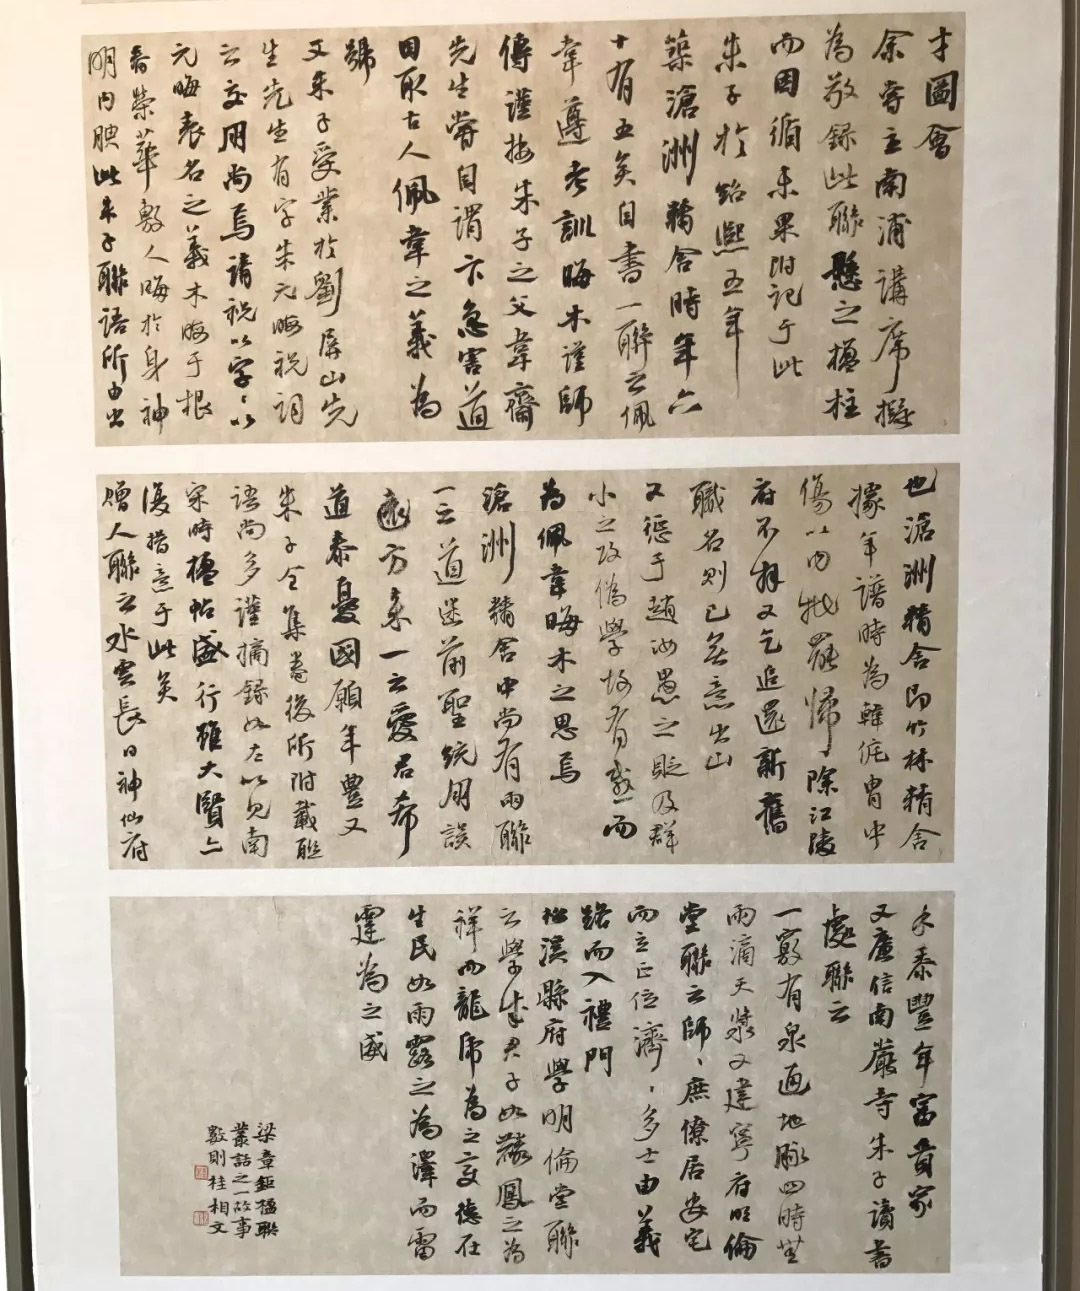 才圖會
余嘗主南浦講席擬
為敬錄此聯懸之楹柱
而因循未果附記于此
朱子於紹熙五年
築滄洲精舍時年六
十有五矣自書一聯云佩
韋遵考訓晦木謹師
傳謹按朱子之父韋齋
先生嘗自謂卞急害道
因取古人佩韋之義為
號
又朱子受業於劉屏山先
生先生有字朱元晦祝詞
云交朋尚焉請祝以字〻以
元晦表名之義木晦于根
春榮華敷人晦於身神
明内腴此朱子聯語所由出
也滄洲精舍即竹林精舍
據年譜時為韓侂冑中
傷以内批罷歸除江陵
府不拜又乞追還新舊
職名則已無意出山
又懲于趙汝愚之貶及群
小之攻偽學故有感而
為佩韋晦木之思焉
滄洲精舍中尚有兩聯
一云道迷前聖統朋誤
遠方來一云愛君希
道泰憂國願年豐又
朱子全集卷後所附載聯
語尚多謹摘錄如左以見南
宋時楹帖盛行雖大賢亦
復措意于此矣
贈人聯云水雲長日神仙府
禾黍豐年富貴家
又廣信南巖寺朱子讀書
處聯云
一竅有泉通地脉四時無
雨滴天漿又建寧府明倫
堂聯云師〻庶僚居安宅
而立正位濟〻多士由義
路而入禮門
松溪縣府學明倫堂聯
云學成君子如麟鳳之為
祥而龍虎為之變德在
生民如雨露之為澤而雷
霆為之威
梁章鉅楹聯
叢話之一故事
數則 桂相文